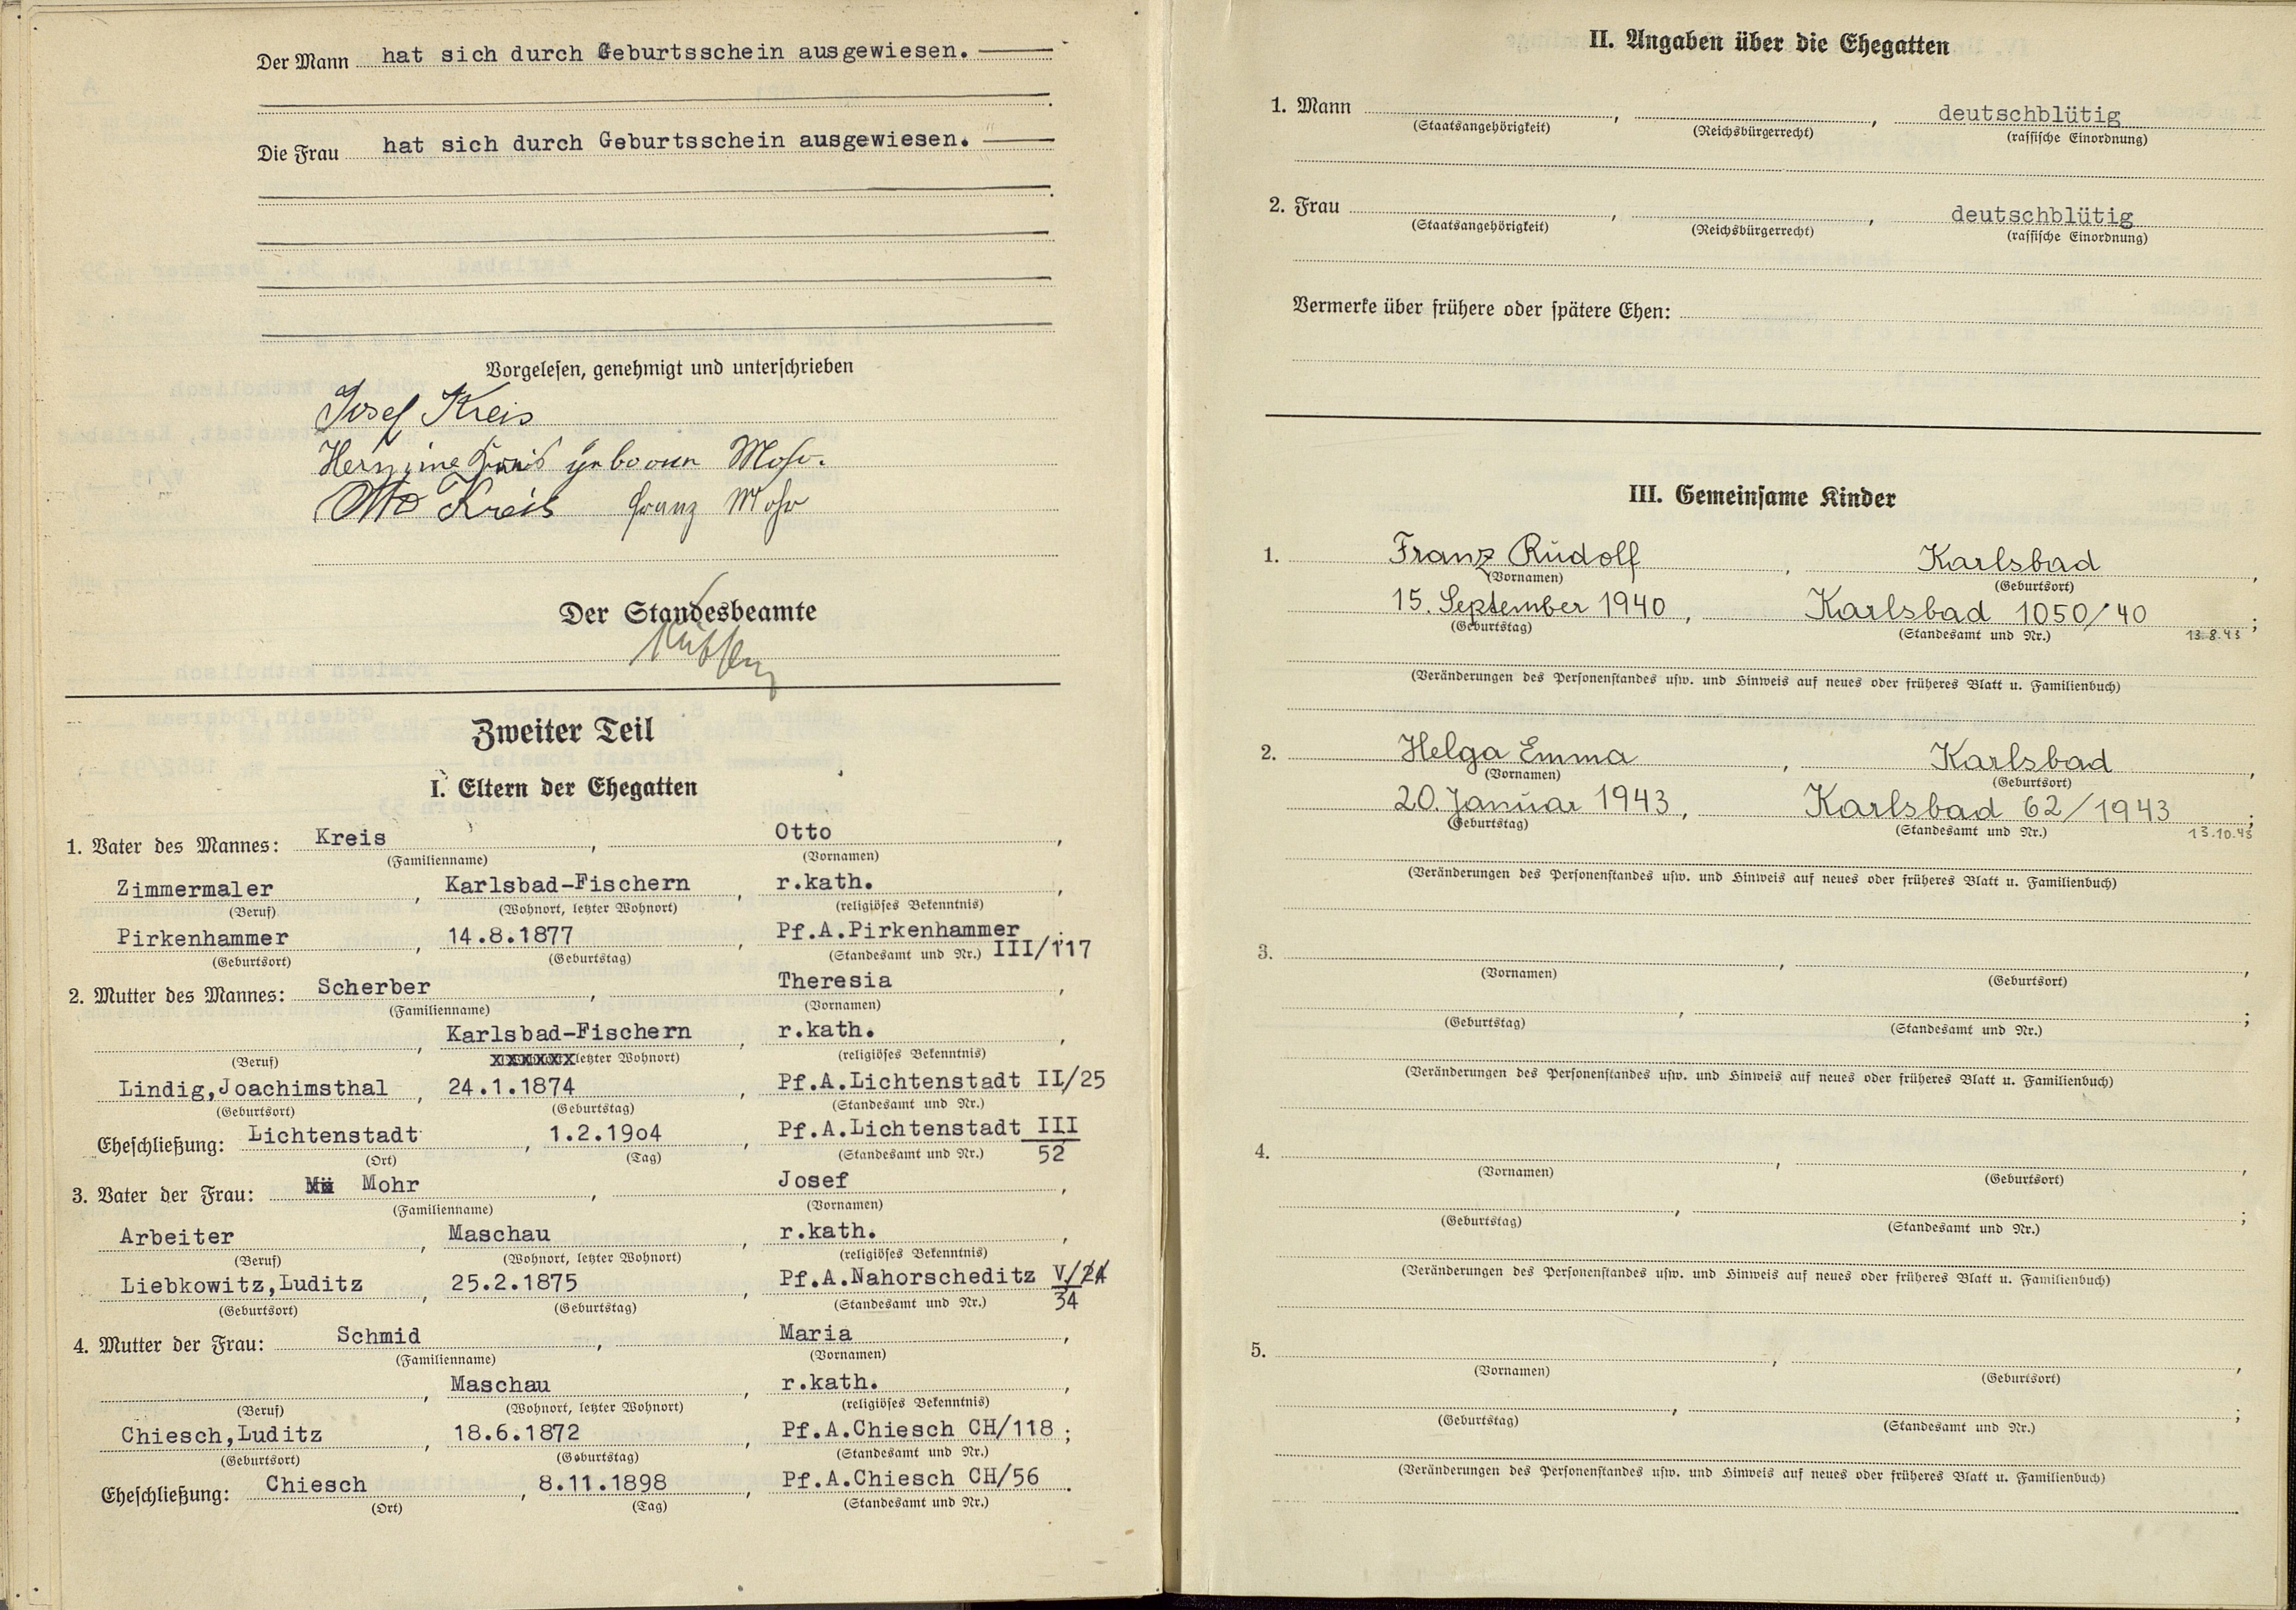 Der Mann hat sich durch Geburtsschein ausgewiesen.
Die Frau hat sich durch Geburtsschein ausgewiesen.
Vorgelesen, genehmigt und unterschrieben
Josef Kreis
Hermine Kreis geborene Mohr.
Otto Kreis Franz Mohr
Der Standesbeamte
Zweiter Teil
I. Eltern der Ehegatten
1. Vater des Mannes: Kreis, Otto,
(Familienname) (Vornamen)
Zimmermaler, Karlsbad-Fischern, r.kath.,
(Beruf) (Wohnort, letzter Wohnort) (religiöses Bekenntnis)
Pirkenhammer, 14.8.1877, Pf.A.Pirkenhammer;
(Geburtsort) (Geburtstag) (Standesamt und Nr.) III/117
2. Mutter des Mannes: Scherber, Theresia,
(Familienname) (Vornamen)
, Karlsbad-Fischern, r.kath.,
(Beruf) xxxxxx letzter Wohnort) (religiöses Bekenntnis)
Lindig,Joachimsthal, 24.1.1874, Pf.A.Lichtenstadt II/25
(Geburtsort) (Geburtstag) (Standesamt und Nr.)
Eheschließung: Lichtenstadt, 1.2.19o4, Pf.A.Lichtenstadt III
(Ort) (Tag) (Standesamt und Nr.) 52
3. Vater der Frau: Mohr, Josef,
(Familienname) (Vornamen)
Arbeiter, Maschau, r.kath.,
(Beruf) (Wohnort, letzter Wohnort) (religiöses Bekenntnis)
Liebkowitz,Luditz, 25.2.1875, Pf.A.Nahorscheditz V/
(Geburtsort) (Geburtstag) (Standesamt und Nr.) 34
4. Mutter der Frau: Schmid, Maria,
(Familienname) (Vornamen)
, Maschau, r.kath.,
(Beruf) (Wohnort, letzter Wohnort) (religiöses Bekenntnis)
Chiesch,Luditz, 18.6.1872, Pf.A.Chiesch CH/118;
(Geburtsort) (Geburtstag) (Standesamt und Nr.)
Eheschließung: Chiesch, 8.11.1898, Pf.A.Chiesch CH/56.
(Ort) (Tag) (Standesamt und Nr.)
II. Angaben über die Ehegatten
1. Mann , , deutschblütig
(Staatsangehörigkeit) (Reichsbürgerrecht) (rassische Einordnung)
2. Frau , , deutschblütig
(Staatsangehörigkeit) (Reichsbürgerrecht) (rassische Einordnung)
Vermerke über frühere oder spätere Ehen:
III. Gemeinsame Kinder
1. Franz Rudolf, Karlsbad,
(Vornamen) (Geburtsort)
15. September 1940, Karlsbad 1050/40;
(Geburtstag) (Standesamt und Nr.) 13.8.43
(Veränderungen des Personenstandes usw. und Hinweis auf neues oder früheres Blatt u. Familienbuch)
2. Helga Emma, Karlsbad,
(Vornamen) (Geburtsort)
20. Januar 1943, Karlsbad 62/1943;
(Geburtstag) (Standesamt und Nr.) 13.10.43
(Veränderungen des Personenstandes usw. und Hinweis auf neues oder früheres Blatt u. Familienbuch)
3. , ,
(Vornamen) (Geburtsort)
, ;
(Geburtstag) (Standesamt und Nr.)
(Veränderungen des Personenstandes usw. und Hinweis auf neues oder früheres Blatt u. Familienbuch)
4. , ,
(Vornamen) (Geburtsort)
, ;
(Geburtstag) (Standesamt und Nr.)
(Veränderungen des Personenstandes usw. und Hinweis auf neues oder früheres Blatt u. Familienbuch)
5. , ,
(Vornamen) (Geburtsort)
, ;
(Geburtstag) (Standesamt und Nr.)
(Veränderungen des Personenstandes usw. und Hinweis auf neues oder früheres Blatt u. Familienbuch)